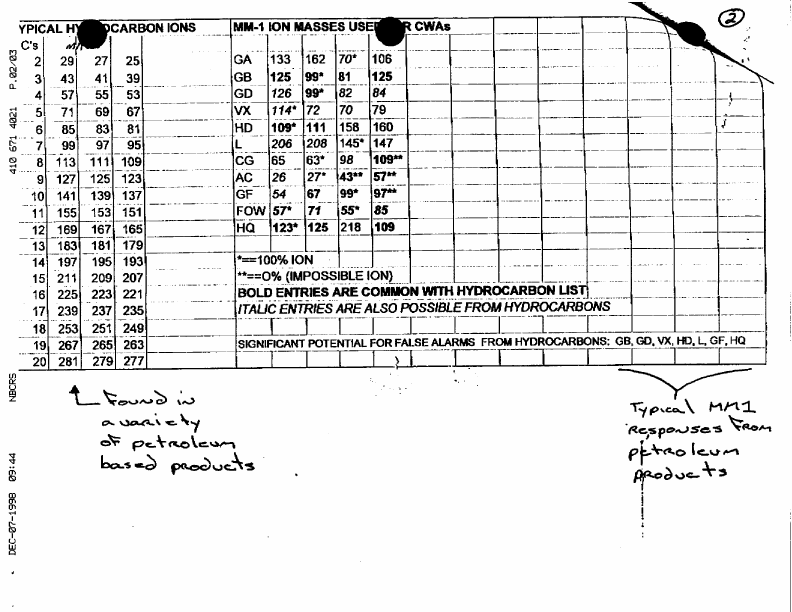 2
YPICAL HY CARBON IONS MM-1 ION MASSES USE R CWAs
C's
2 29 27 25 GA 133 162 70* 106
3 43 41 39 GB 125 99* 81 125
4 57 55 53 GD 126 99* 82 84
5 71 69 67 VX 114* 72 70 79
6 85 83 81 HD 109* 111 158 160
7 99 97 95 L 206 208 145* 147
8 113 111 109 CG 65 63* 98 109**
9 127 125 123 AC 26 27* 43** 57**
10 141 139 137 GF 54 67 99* 97**
11 155 153 151 FOW 57* 71 55* 85
12 169 167 165 HQ 123* 125 218 109
13 183 181 179
14 197 195 193 *==100% ION
15 211 209 207 **==0% (IMPOSSIBLE ION)
16 225 223 221 BOLD ENTRIES ARE COMMON WITH HYDROCARBON LIST
17 239 237 235 ITALIC ENTRIES ARE ALSO POSSIBLE FROM HYDROCARBONS
18 253 251 249
19 267 265 263 SIGNIFICANT POTENTIAL FOR FALSE ALARMS FROM HYDROCARBONS: GB, GD, VX, HD, L, GF, HQ
20 281 279 277
Found in
a variety
of petroleum
based products
Typical MM1
Responses From
petroleum
products
DEC-07-1998 09:44 NBCRS 410 671 4021 P.02/03